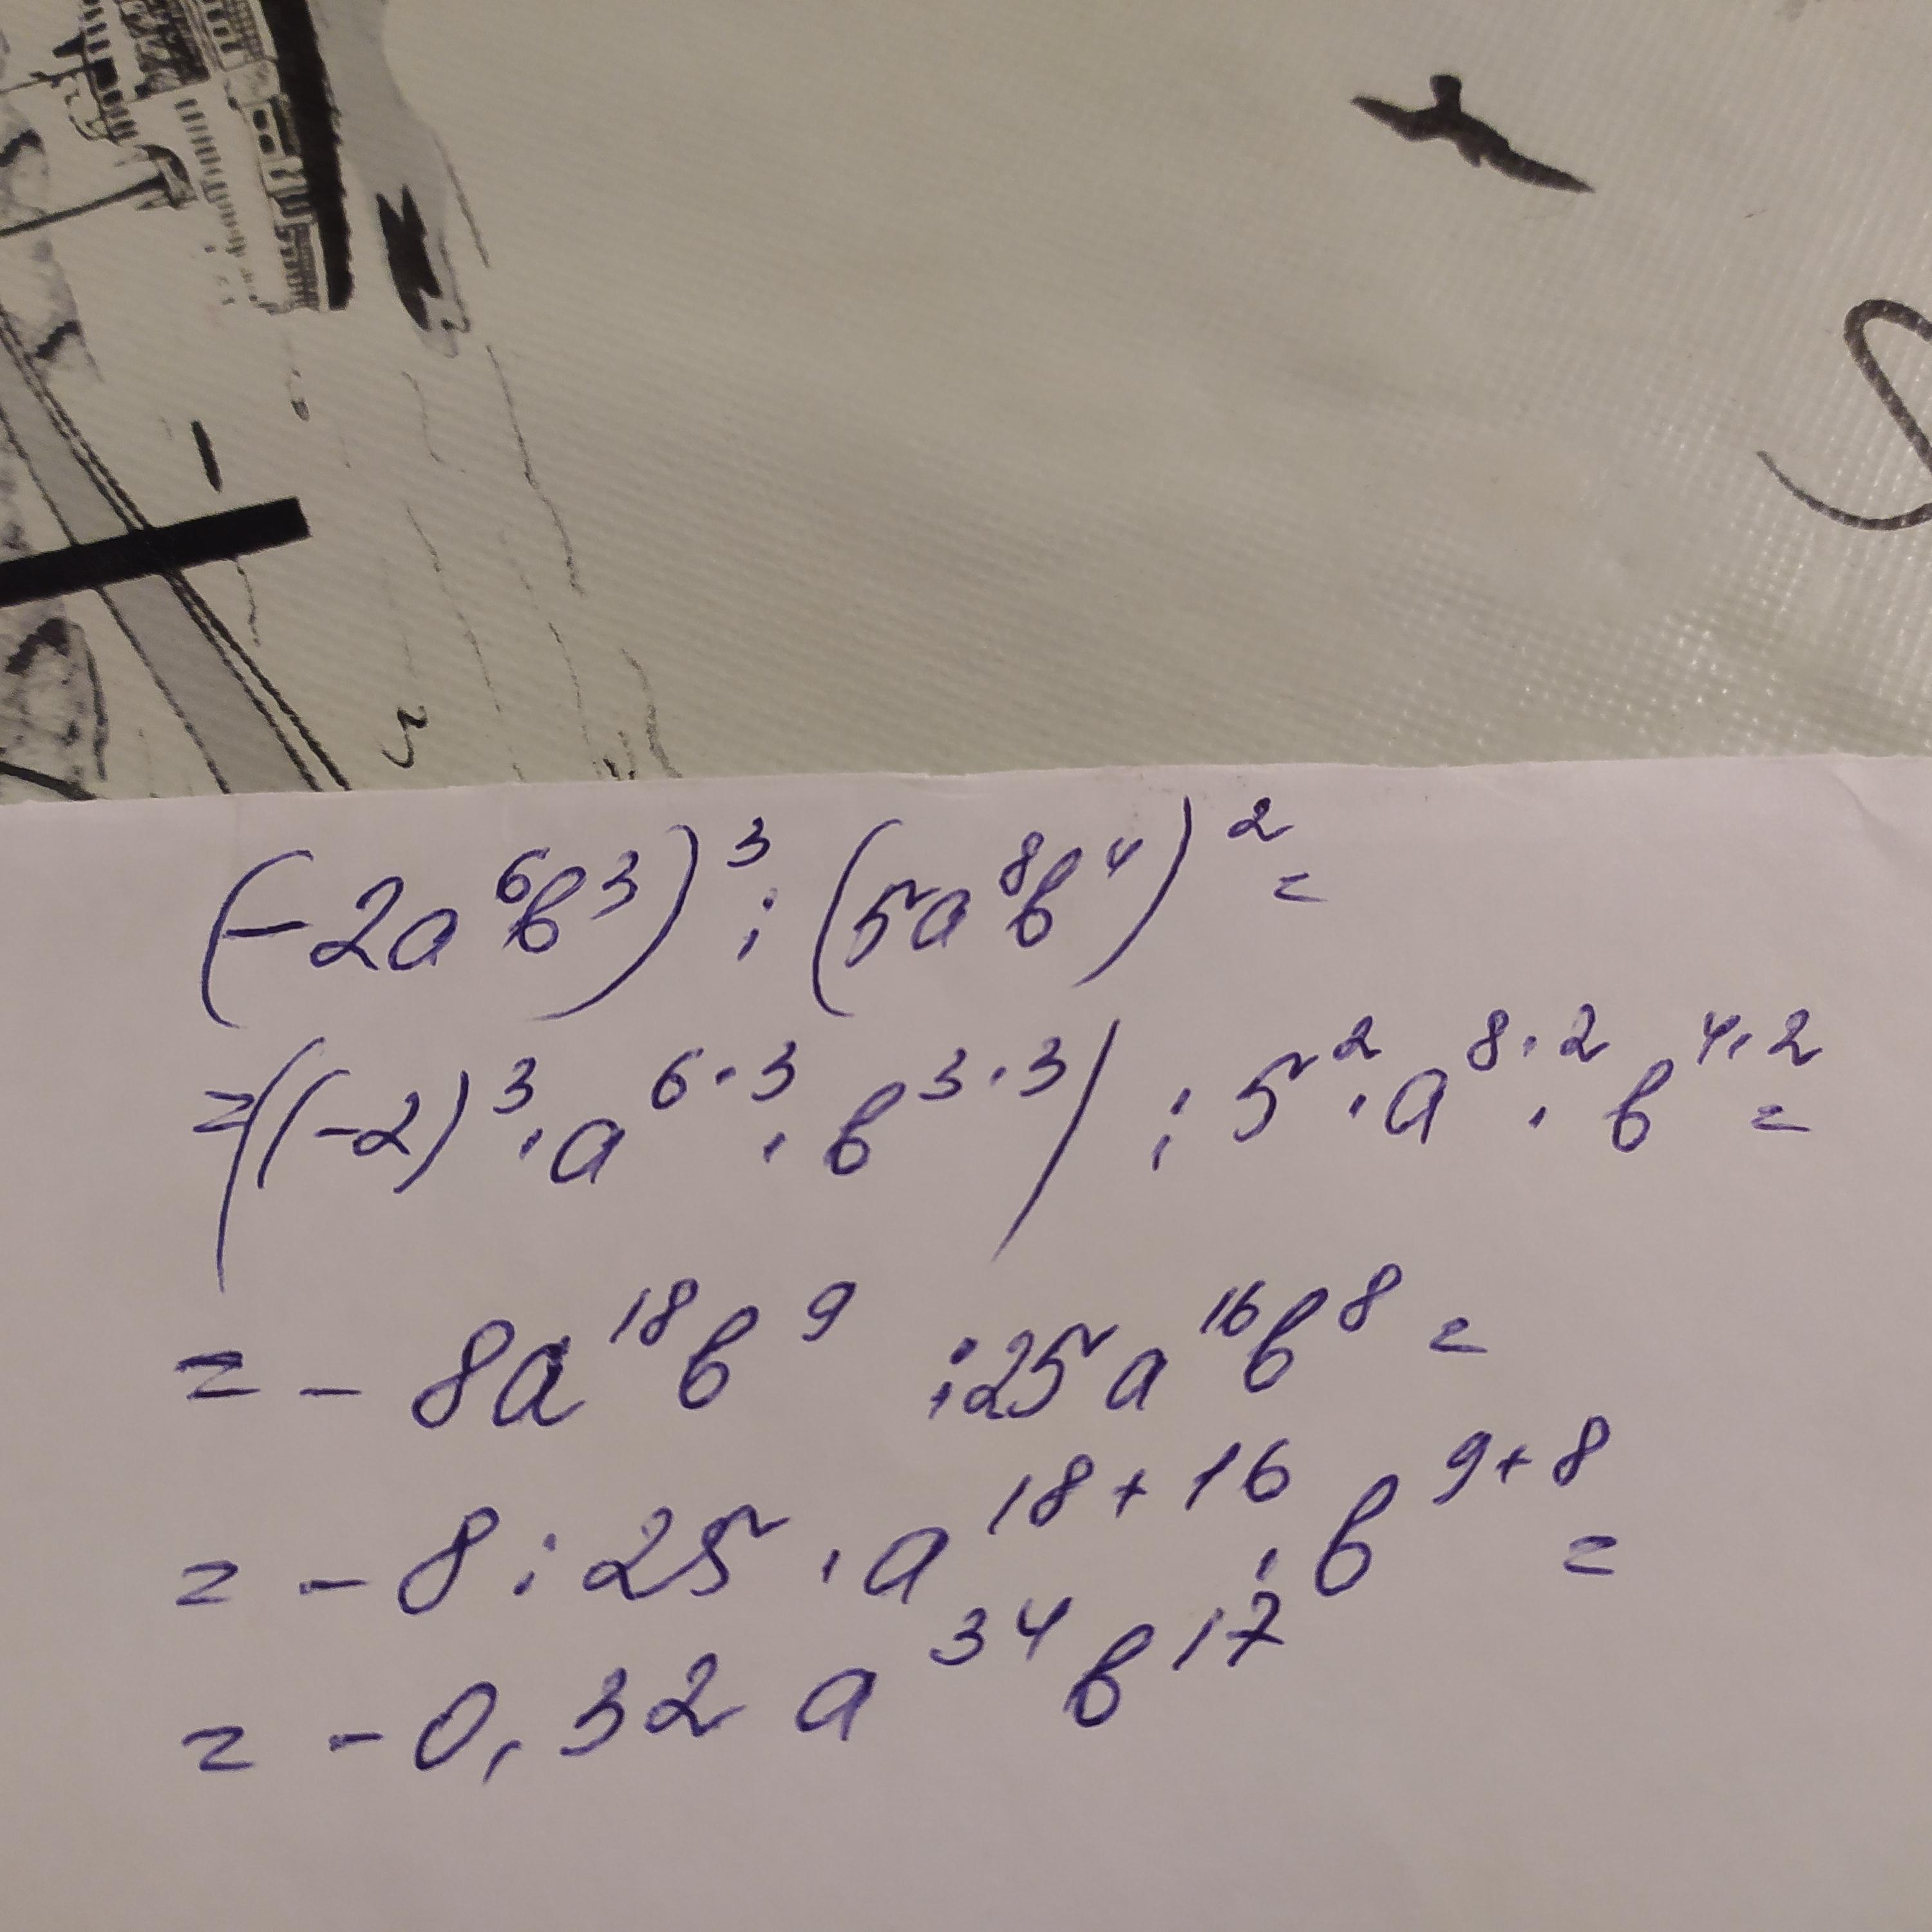 (-2a⁶b³)³ : (5a⁸b⁴)² =
=((-2)³·a⁶·³·b³·³) : 5²·a⁸·²·b⁴·² =
= - 8a¹⁸b⁹ : 25a¹⁶b⁸ =
= - 8 : 25 · a¹⁸⁺¹⁶ · b⁹⁺⁸ =
= - 0,32 a³⁴b¹⁷